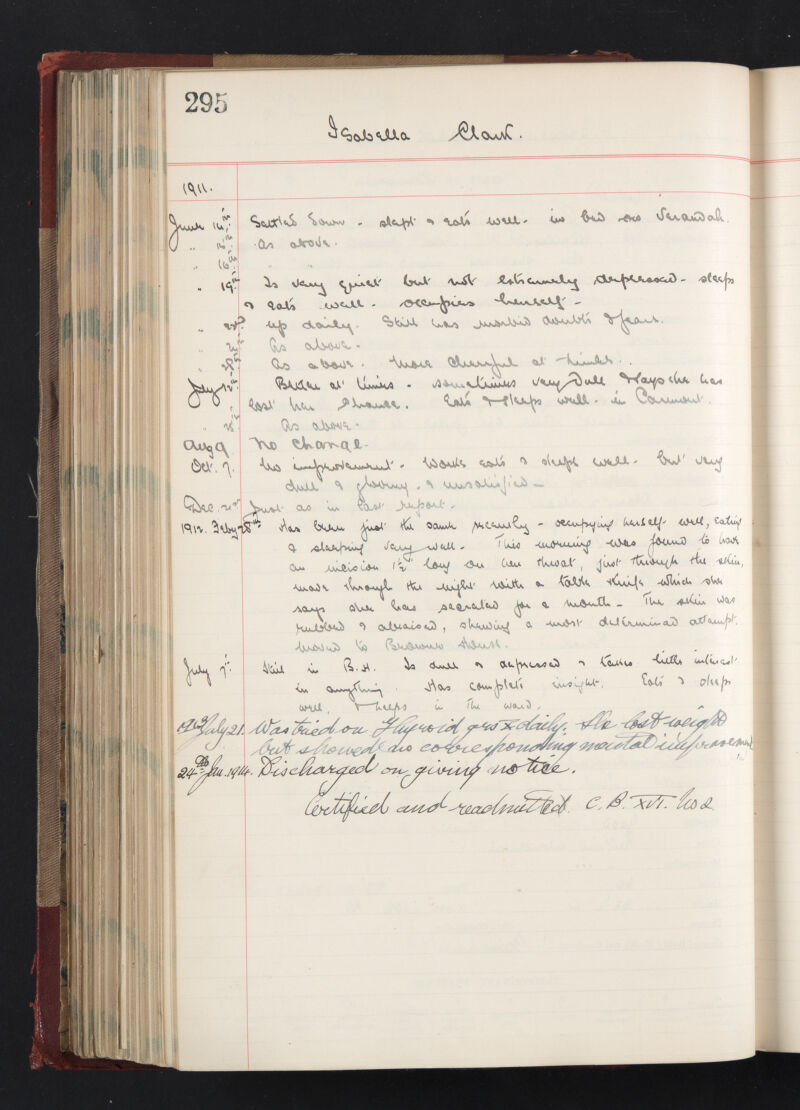 295
Isabella Clark.
1911.
June 14th Settled down - slept & eats well - in bed on Verandah.
" 15th As above.
" 16th " "
" 19th Is very quiet but not extremely depressed - sleeps
& eats well - occupies herself -
" up daily. Still has morbid doubts & fears.
" As above -
" 28th As above. More cheerful at times.
July 12th Better at times - sometimes very dull & says she has
lost her chance. Eats & sleeps well - in
" 28th As above -
Aug 9 No change -
Oct. 7. No improvement - Works eats & sleeps well - but very
dull & gloomy - & unsatisfied -
Dec. Just as in last report -
1912. Feby 28th Has been just the same recently - occupying herself well, eating
& sleeping very well - This morning was found to have
an incision 1½" long on her throat, just through the skin,
made through the night with a table knife which she
says she has secreted for a month - The skin was
rubbed & abraised, shewing a most determined attempt.
Moved to Browns House.
July 7th Still in B.H. Is dull & depressed & takes little interest
in anything. Has complete insight. Eats & sleeps
well, & helps in the ward.
1913 July 21. Was tried on Thyroid grs x daily. She lost weight
but showed no corresponding mental improvement.
24th Jan. 1914. Discharged on giving notice.
Certified and readmitted. C. B. XVI. No 2